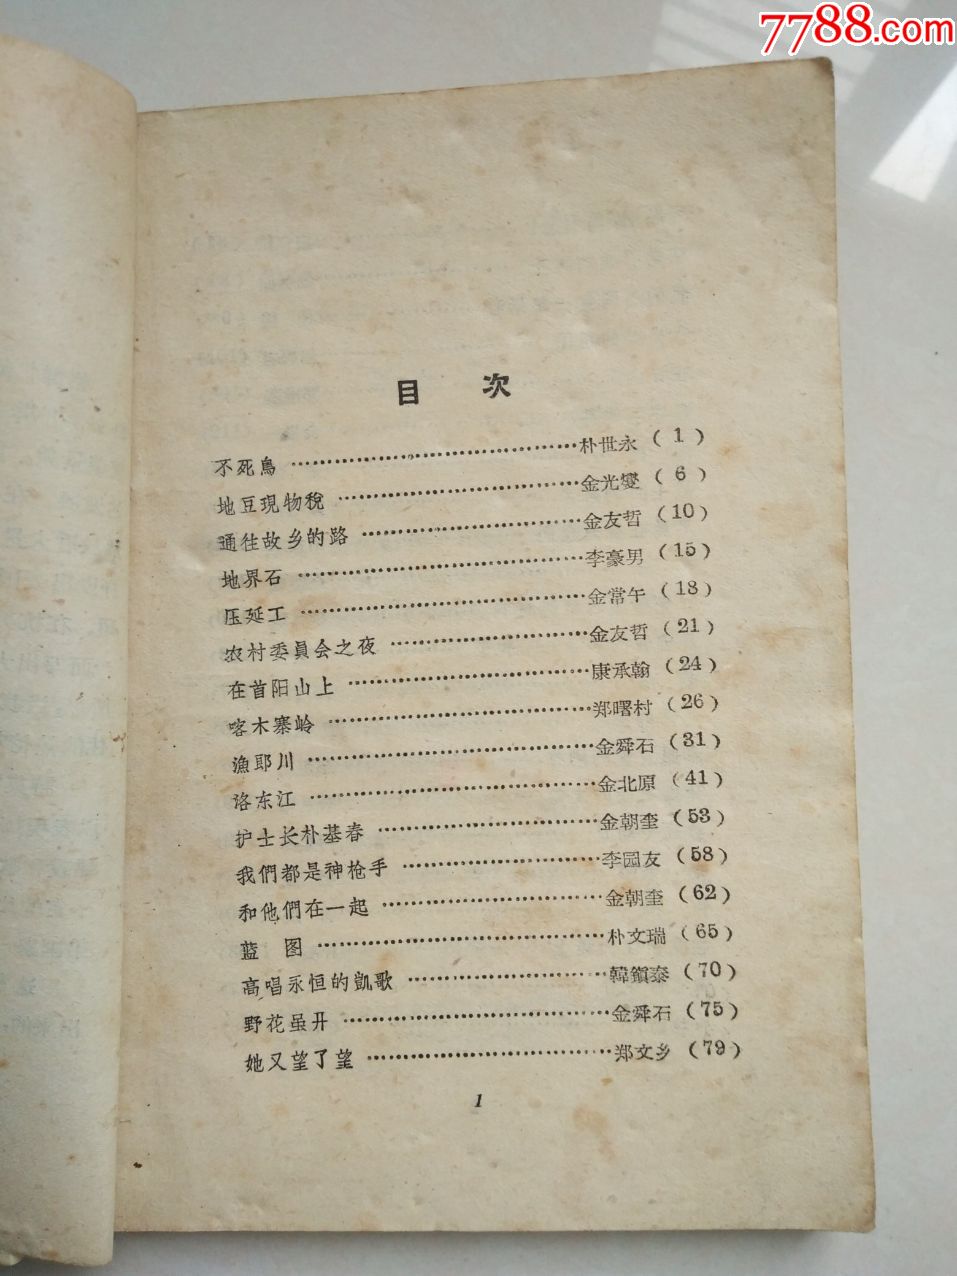 7788.com
目 次
不死鳥 ………………………… 朴世永 (1)
地豆現物稅 ………………………… 金光燮 (6)
通往故乡的路 ………………………… 金友哲 (10)
地界石 ………………………… 李豪男 (15)
压延工 ………………………… 金常午 (18)
农村委員会之夜 ………………………… 金友哲 (21)
在首阳山上 ………………………… 康承翰 (24)
喀木寨岭 ………………………… 郑曙村 (26)
漁郎川 ………………………… 金舜石 (31)
洛东江 ………………………… 金北原 (41)
护士长朴基春 ………………………… 金朝奎 (53)
我們都是神枪手 ………………………… 李园友 (58)
和他們在一起 ………………………… 金朝奎 (62)
蓝 图 ………………………… 朴文瑞 (65)
高唱永恒的凱歌 ………………………… 韓鎭泰 (70)
野花虽开 ………………………… 金舜石 (75)
她又望了望 ………………………… 郑文乡 (79)
1